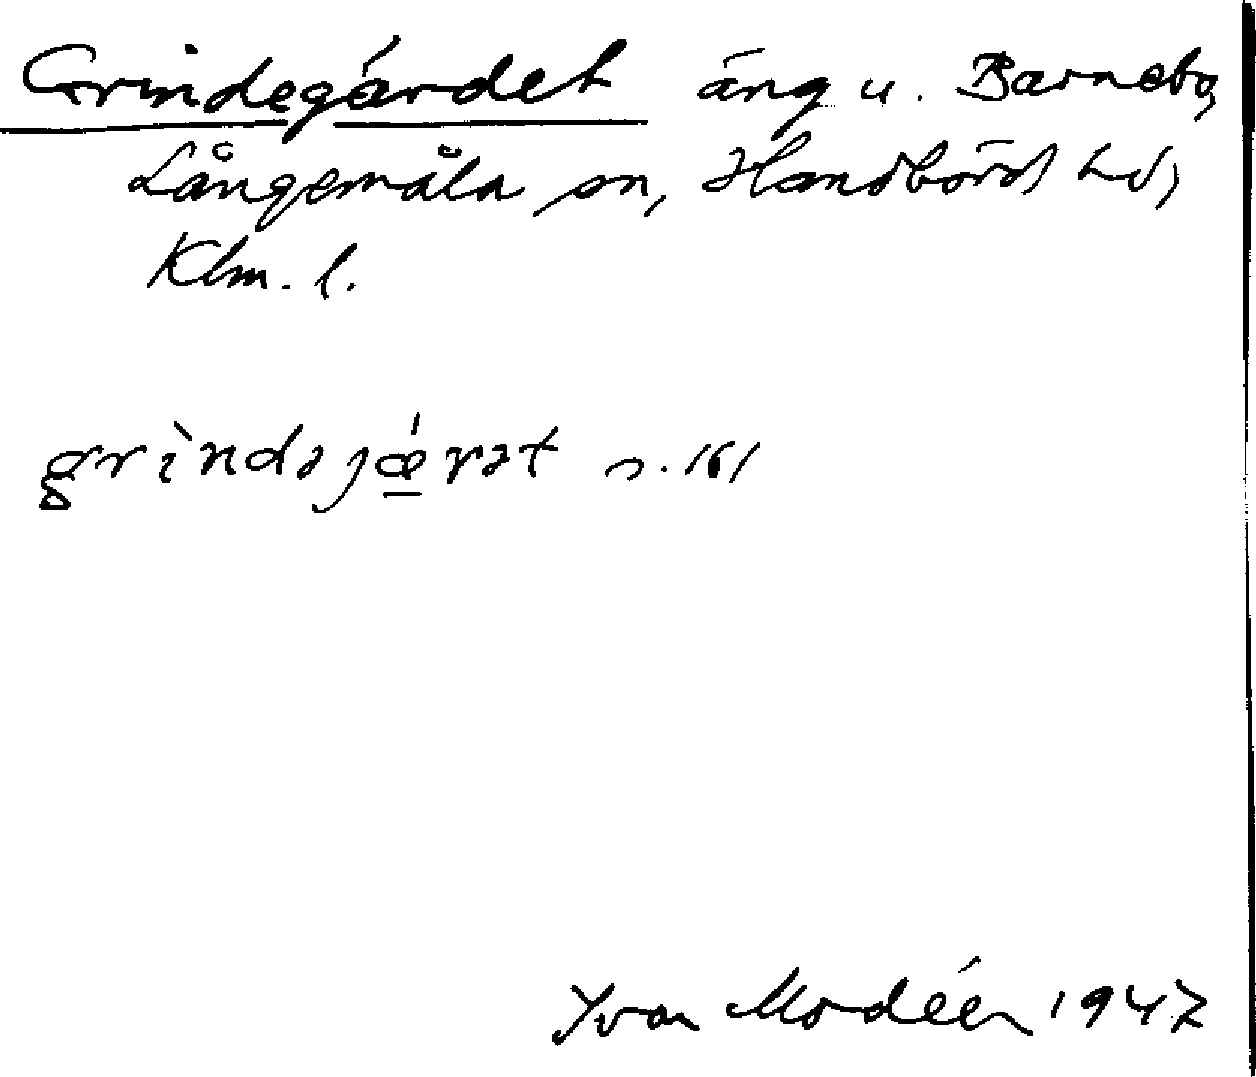 Grindegärdet äng u. Barnebo,
Långemåla sn, Handbörds hd,
Klm. l.
grìndəjǽrət s. 161
Yvan Modéer 1947